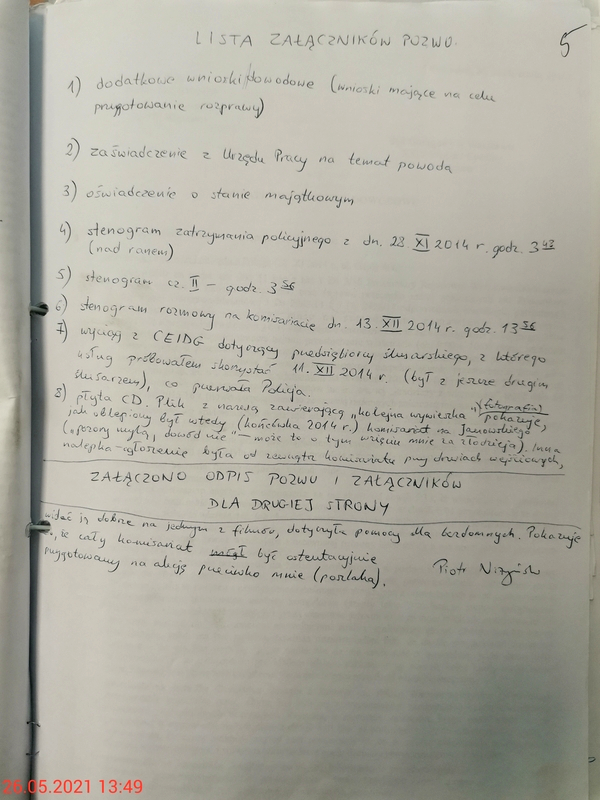 LISTA ZAŁĄCZNIKÓW POZWU.
5
1) dodatkowe wnioski dowodowe (wnioski mające na celu
przygotowanie rozprawy)
2) zaświadczenie z Urzędu Pracy na temat powoda
3) oświadczenie o stanie majątkowym
4) stenogram zatrzymania policyjnego z dn. 28 XI 2014 r. godz. 3 43
(nad ranem)
5) stenogram cz. II – godz. 3 56
6) stenogram rozmowy na komisariacie dn. 13. XII 2014 r. godz. 13 56
7) wyciąg z CEIDG dotyczący przedsiębiorcy ślusarskiego, z którego
usług próbowałem skorzystać 11. XII 2014 r. (był z jeszcze drugim
ślusarzem), co przerwała Policja.
8) płyta CD. Plik z nazwą zawierającą „kolejna wywieszka" (fotografia) pokazuje,
jak oblepiony był wtedy (końcówka 2014 r.) komisariat na Janowskiego
(„pozory mylą, dowód nie" – może to o tym wzięciu mnie za złodzieja). Inna
nalepka-ogłoszenie była od zewnątrz komisariatu przy drzwiach wejściowych,
ZAŁĄCZONO ODPIS POZWU I ZAŁĄCZNIKÓW
DLA DRUGIEJ STRONY
widać ją dobrze na jednym z filmów, dotyczyła pomocy dla bezdomnych. Pokazuje
to, że cały komisariat mógł być ostentacyjnie
przygotowany na akcję przeciwko mnie (poszlaka).
Piotr Niżyński
26.05.2021 13:49